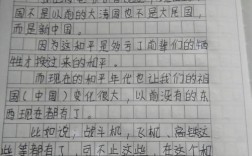 国不是以前的大清国也不是大民国,
而是新中国。
因为这和平是给為了前辈们的牺
牲才换过来的和平。
而现在的和平年代也让我们的祖
国(中国)变化很大,以前没有的东
西现在都有了。
比如说,战斗机,飞机,高铁这
些等都有了,可不止这些,在这个和